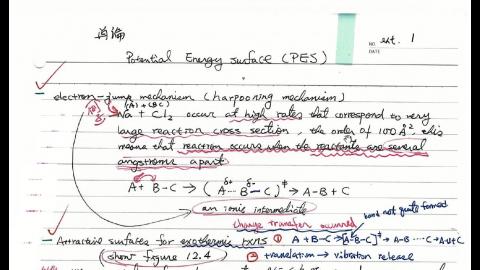 NO. ext. 1
DATE
Potential Energy surface (PES)
electron-jump mechanism (harpooning mechanism)
(A) + (BC)
Na + Cl2 occur at high rates that correspond to very
large reaction cross section, the order of 100 Å², this
means that reaction occurs when the reactants are several
angstroms apart
A + B-C → (A··· B — C)‡ → A-B + C
δ+ δ-
an ionic intermediate
change transfer occurred
bond not quite formed
Attractive surfaces for exothermic rxns ① A + B-C → [A-B-C]‡ → A-B ··· C → A+B+C
(show figure 12.4) ② translation → vibration release